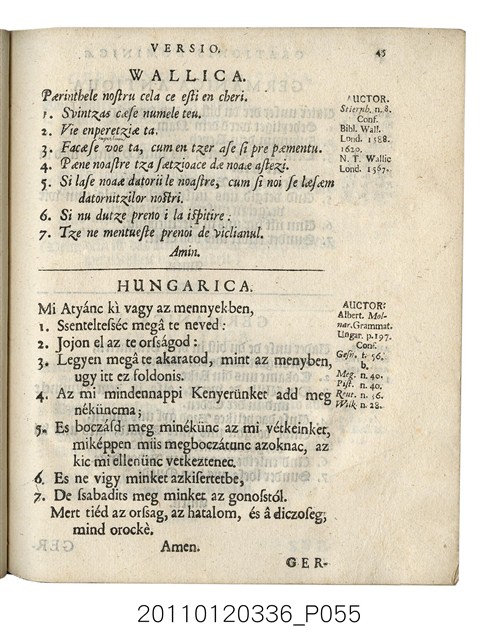 VERSIO.
45
WALLICA.
Pærinthele noſtru cela ce eſti en cheri.
1. Svintzas cæſe numele teu.
2. Vie enperetziæ ta.
3. Facæſe voe ta, cum en tzer aſe ſi pre pæmentu.
4. Pæne noaſtre tza ſætzioace dæ noaæ aſtezi.
5. Si laſe noaæ datorii le noaſtre, cum ſi noi ſe læſæm
datornitzilor noſtri.
6. Si nu dutze preno i la iſpitire:
7. Tze ne mentueſte prenoi de viclianul.
Amin.
AUCTOR.
Stierph. n. 8.
Conf.
Bibl. Wall.
Lond. 1588.
1620.
N. T. Wallic
Lond. 1567.
HUNGARICA.
Mi Atyánc kì vagy az mennyekben,
1. Ssentelteſséc megâ te neved:
2. Jojon el az te orſságod:
3. Legyen megâ te akaratod, mint az menyben,
ugy itt ez foldonis.
4. Az mi mindennappi Kenyerünket add meg
néküncma;
5. Es boczáſd meg minékünc az mi vétkeinket,
miképpen miis megboczátunc azoknac, az
kic mi ellenünc vetkeztenec.
6. Es ne vigy minket azkiſertetbe,
7. De ſsabadits meg minket az gonoſtól.
Mert tiéd az orſsag, az hatalom, és â diczoſeg;
mind orockè.
Amen.
AUCTOR:
Albert. Mol-
nar. Grammat.
Ungar. p. 197.
Conf.
Geſn. t. 56.
b.
Meg. n. 40.
Piſt. n. 40.
Reut. n. 36.
Wolk n. 28.
GER-
20110120336_P055